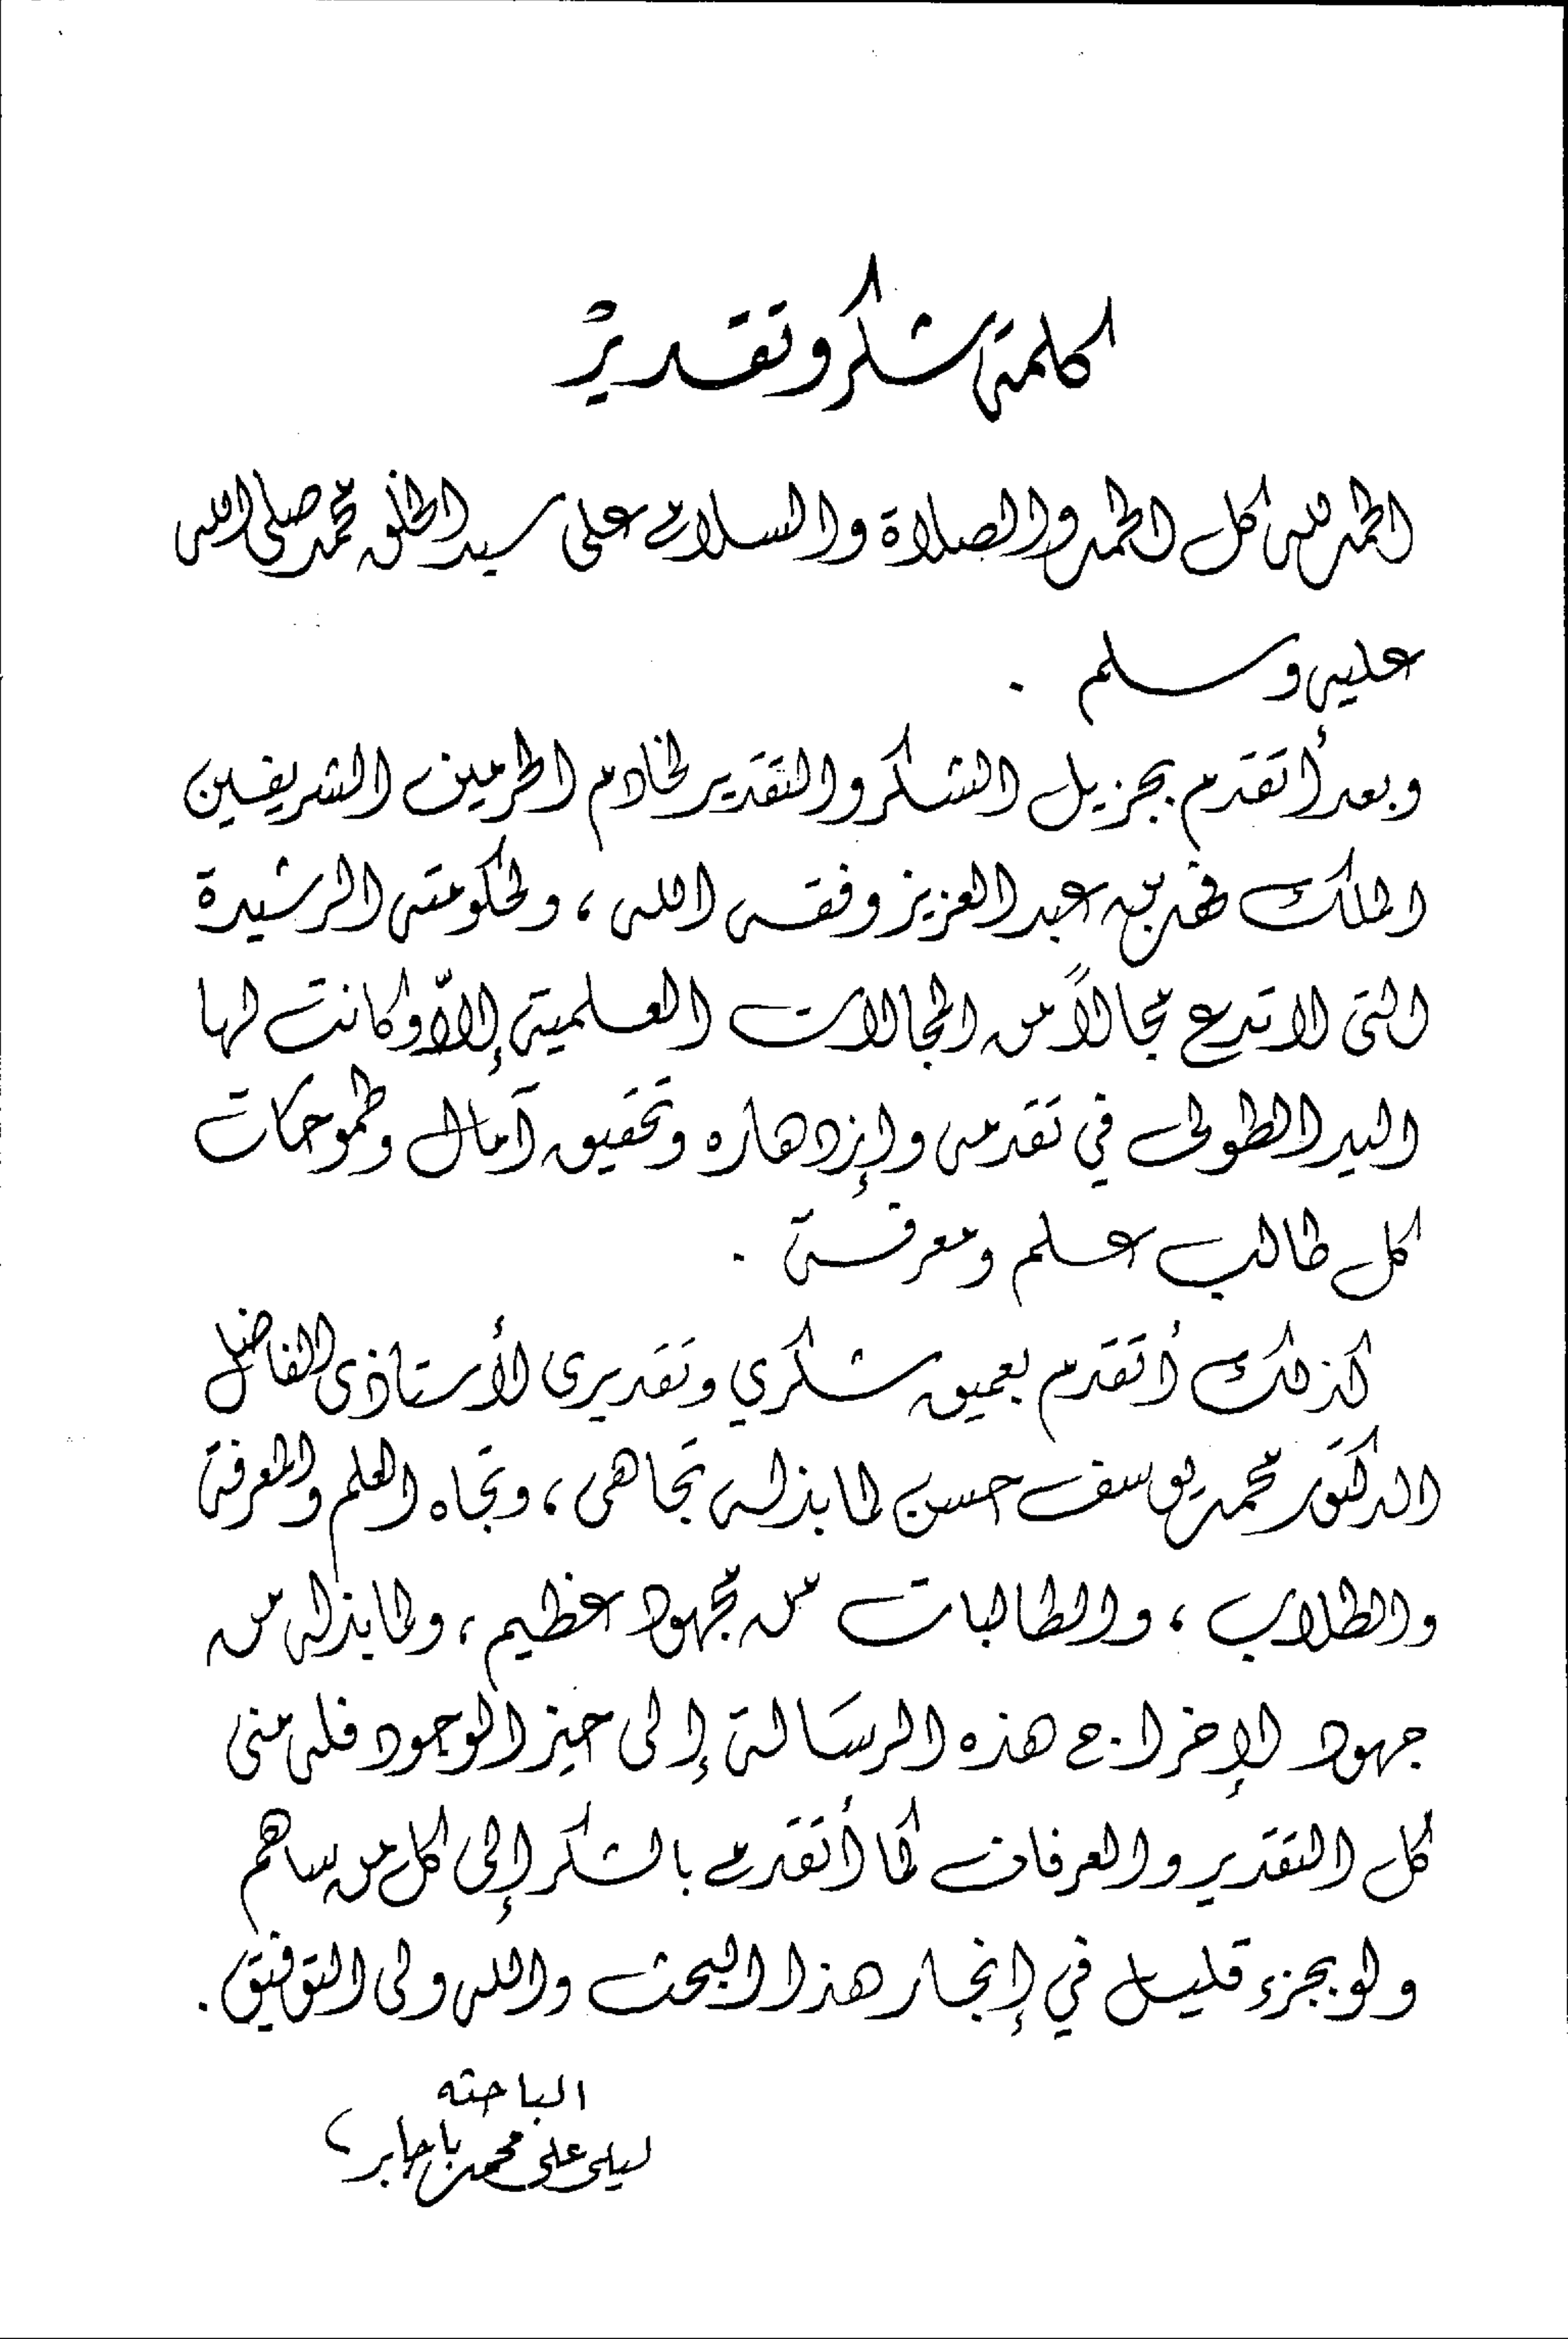 كلمة شكر وتقدير
الحمد لله كل الحمد والصلاة والسلام على سيد الخلق محمد صلى الله
عليه وسلم .
وبعد أتقدم بجزيل الشكر والتقدير لخادم الحرمين الشريفين
الملك فهد بن عبد العزيز وفقه الله ، ولحكومته الرشيدة
التى لا تدع مجالاً من المجالات العلمية إلاّ وكانت لها
اليد الطولى في تقدمه وإزدهاره وتحقيق آمال وطموحات
كل طالب علم ومعرفة .
كذلك أتقدم بعميق شكري وتقديرى لأستاذى الفاضل
الدكتور محمد يوسف حسن لما بذله تجاهى ، وتجاه العلم والمعرفة
والطلاب ، والطالبات من مجهود عظيم ، ولما بذله من
جهود لإخراج هذه الرسَالة إلى حيز الوجود فله منى
كل التقدير والعرفان كما أتقدم بالشكر إلى كل من ساهم
ولو بجزء قليل في إنجاز هذا البحث والله ولى التوفيق .
الباحثه
ليلى على محمد باجابر